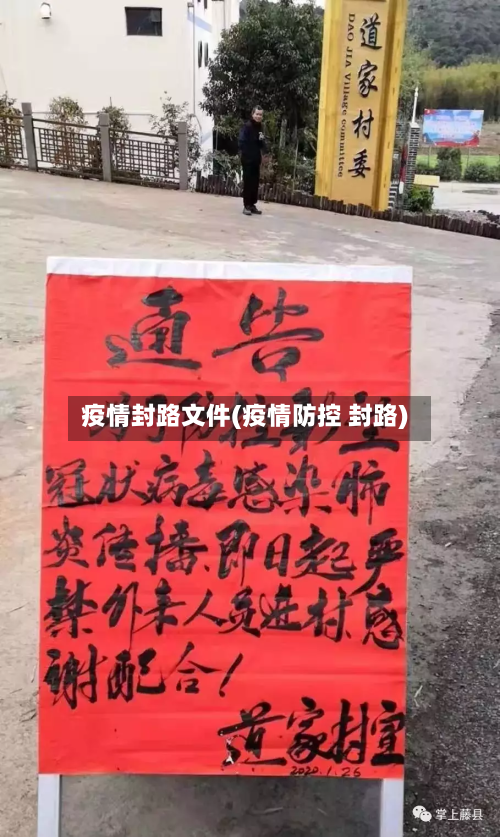 道家村委
DAO JIA Village committee
通告
疫情封路文件(疫情防控 封路)
为了防控新型
冠状病毒感染肺
炎传播、即日起严
禁外来人员进村、感
谢配合!
道家村宣
2020.1.26
掌上藤县